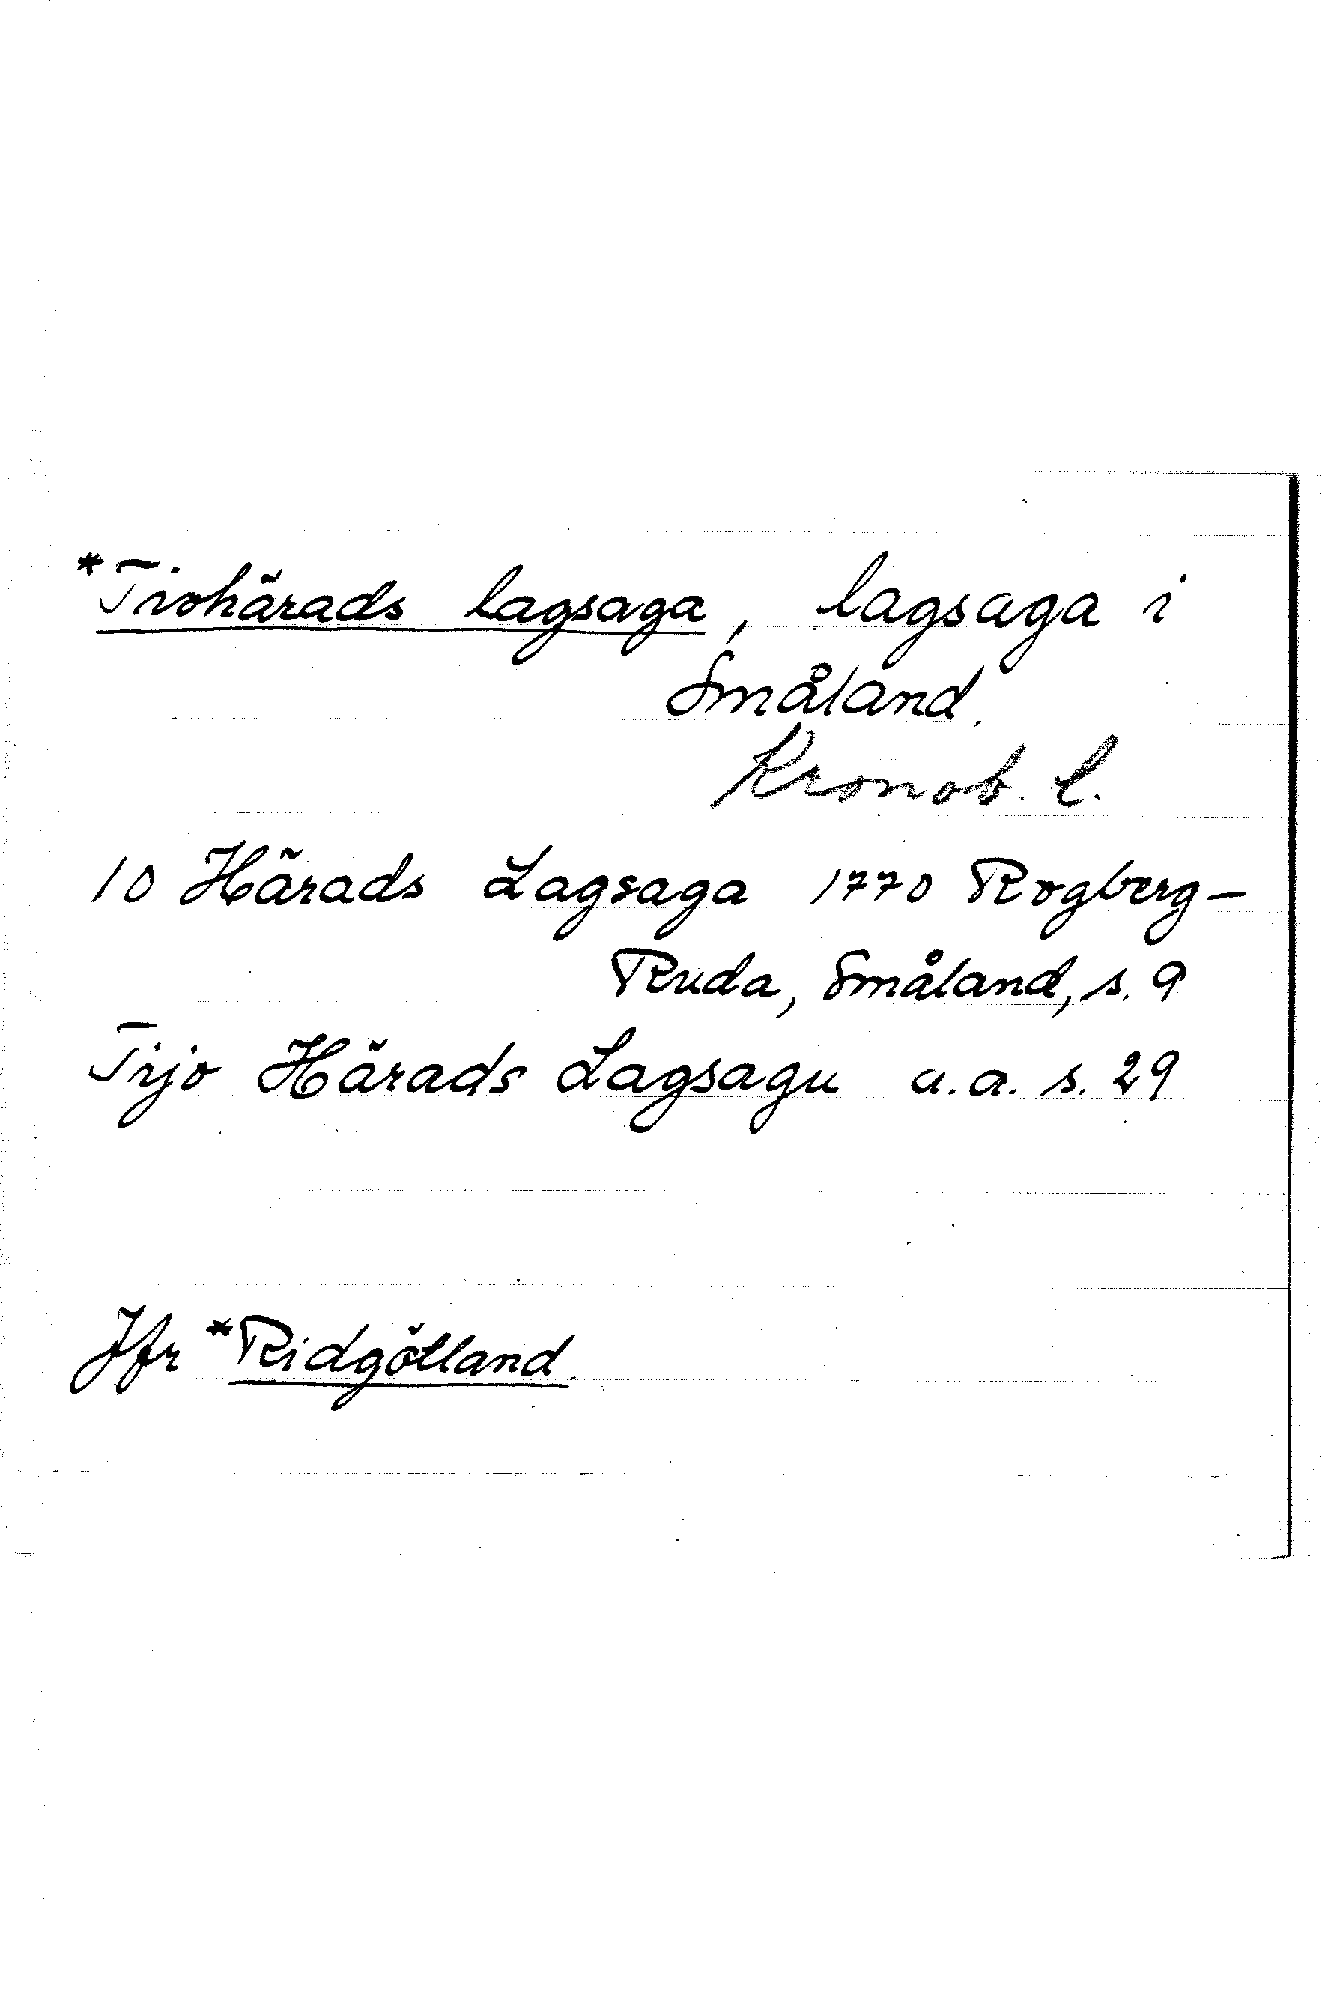 *Tiohärads lagsaga, lagsaga i
Småland.
Kronob. l.
10 Härads Lagsaga 1770 Rogberg-
Ruda, Småland, s. 9
Tijo Härads Lagsagu a.a. s. 29
Jfr *Ridgötland.